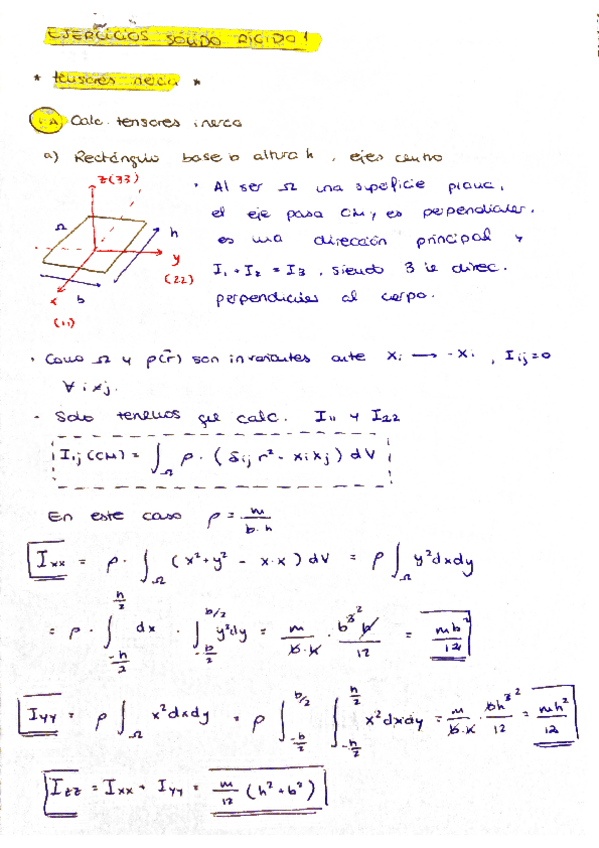 EJERCICIOS SÓLIDO RÍGIDO 1
* tensores inercia *
1.A Calc. tensores inerca
a) Rectángulo base b altura h, ejes centro
z(33)
Ω
h
y
(22)
b
x
(11)
· Al ser Ω una superficie plana,
el eje pasa CM y es perpendicular.
es una dirección principal y
I₁ + I₂ = I₃, siendo 3 la direc.
perpendicular al cuerpo.
· Como Ω y ρ(r⃗) son invariantes ante xᵢ → -xᵢ, Iᵢⱼ=0
∀ i≠j.
- Solo tenemos que calc. I₁₁ y I₂₂
Iᵢⱼ(CM) = ∫_Ω ρ · (δᵢⱼ r² - xᵢxⱼ) dV
En este caso ρ = m/(b·h)
Ixx = ρ · ∫_Ω (x²+y² - x·x) dV = ρ ∫_Ω y²dxdy
= ρ · ∫_{-h/2}^{h/2} dx · ∫_{b/2}^{b/2} y²dy = m/(b·h) · b³h/12 = mb²/12
Iyy = ρ ∫_Ω x²dxdy = ρ ∫_{-b/2}^{b/2} ∫_{-h/2}^{h/2} x²dxdy = m/(b·h) · bh³/12 = mh²/12
Izz = Ixx + Iyy = m/12 (h²+b²)